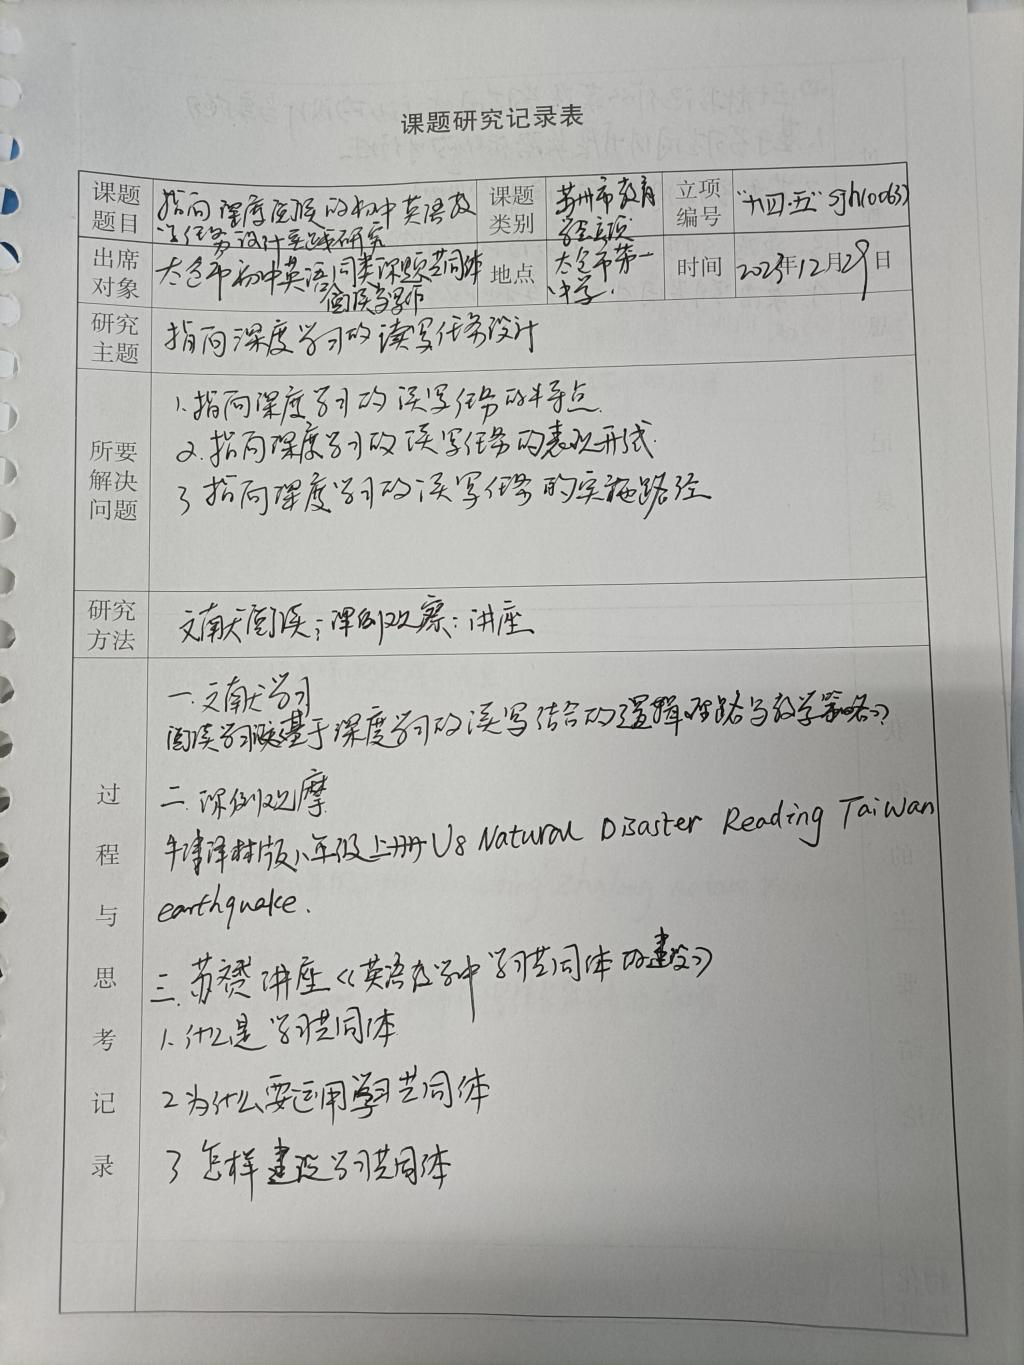 课题研究记录表
课题题目
指向深度阅读的初中英语教
学任务设计实践研究
课题类别
苏州市教育
学会立项
立项编号
"十四·五" Sjh(0063)
出席对象
太仓市初中英语同类课题共同体
阅读
地点
太仓市第一
中学.
时间
2023年12月29日
研究主题
指向深度学习的读写任务设计
所要解决问题
1.指向深度学习的读写任务的特点.
2.指向深度学习的读写任务的表现形式.
3 指向深度学习的读写任务的实施路径
研究方法
文献阅读;课例观察;讲座
过程与思考记录
一.文献学习
阅读学习《基于深度学习的读写结合的逻辑理路与教学策略》
二.课例观摩
牛津译林版八年级上册U8 Natural Disaster Reading Taiwan
earthquake.
三.苏赟讲座《英语教学中学习共同体的建设》
1.什么是学习共同体
2 为什么要运用学习共同体
3 怎样建设学习共同体